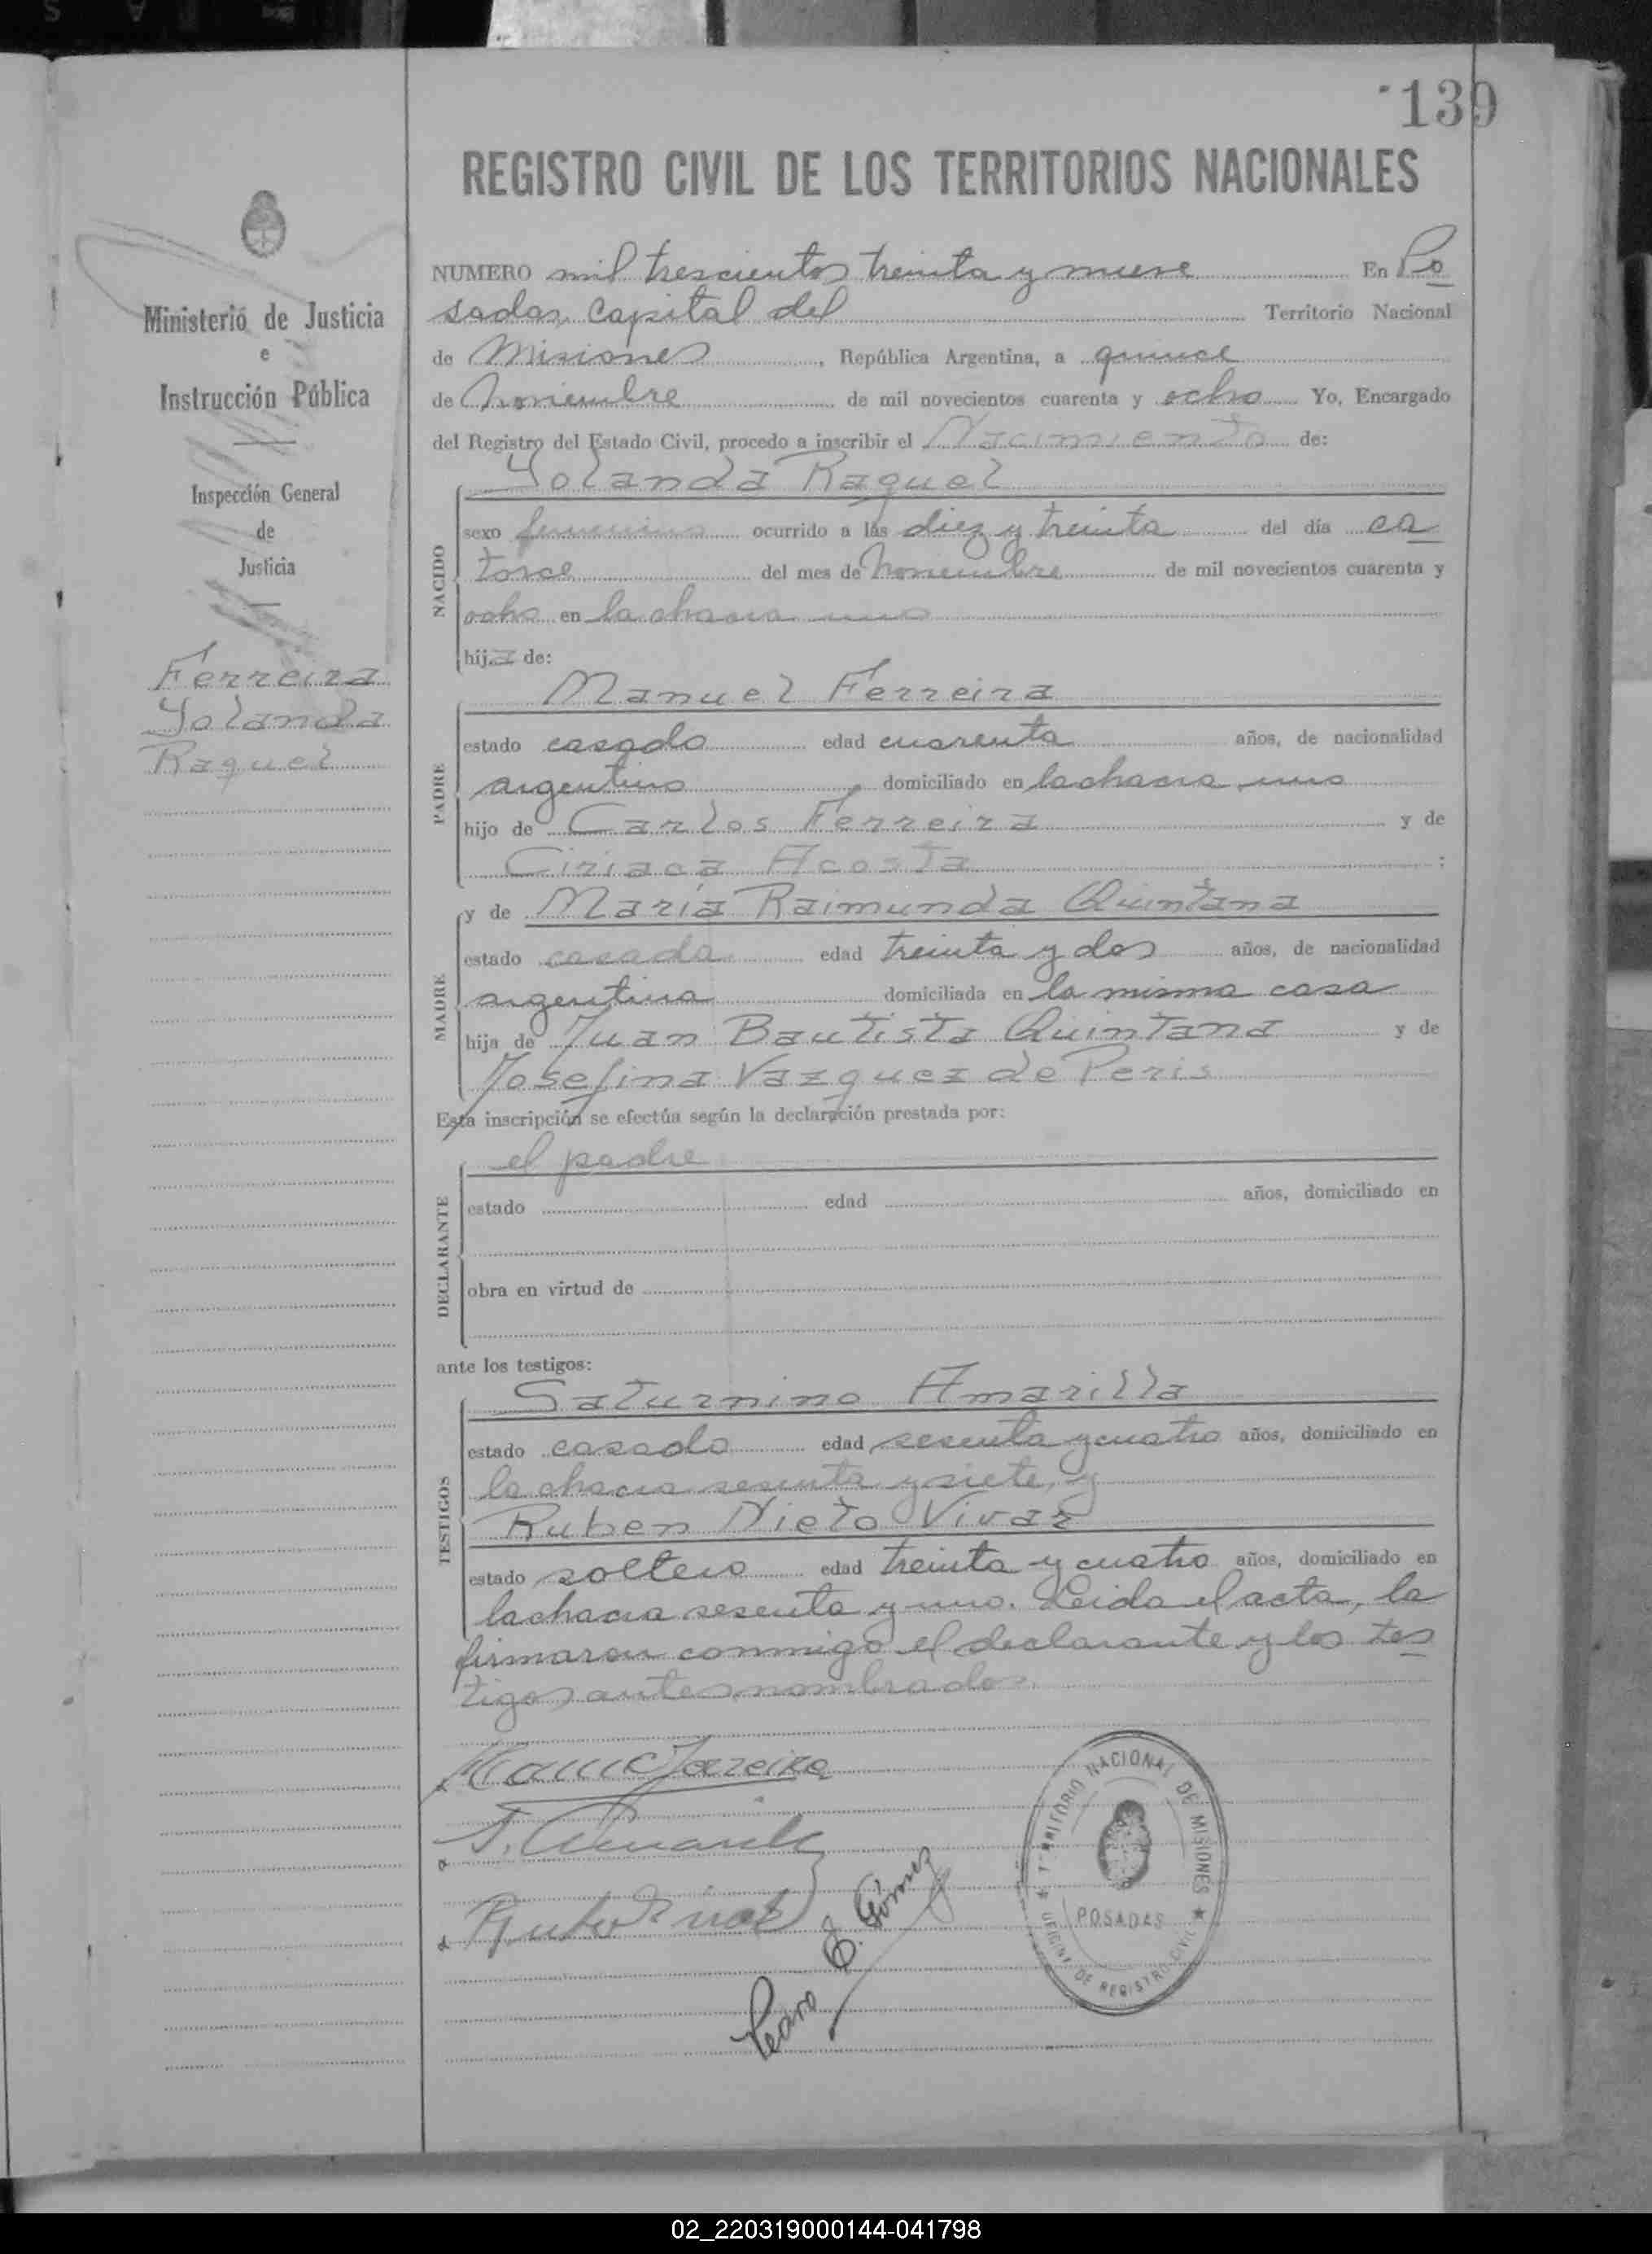 139
REGISTRO CIVIL DE LOS TERRITORIOS NACIONALES
NUMERO mil trescientos treinta y nueve En Po
sadas, Capital del Territorio Nacional
de Misiones, República Argentina, a quince
de noviembre de mil novecientos cuarenta y ocho Yo, Encargado
del Registro del Estado Civil, procedo a inscribir el Nacimiento de:
Yolanda Raquel
NACIDO
sexo femenino ocurrido a las diez y treinta del día ca
torce del mes de noviembre de mil novecientos cuarenta y
ocho en la chacra uno
hija de:
Manuel Ferreira
PADRE
estado casado edad cuarenta años, de nacionalidad
argentino, domiciliado en la chacra uno
hijo de Carlos Ferreira y de
Ciriaca Acosta :
MADRE
y de María Raimunda Quintana
estado casada edad treinta y dos años, de nacionalidad
argentina domiciliada en la misma casa
hija de Juan Bautista Quintana y de
Josefina Vazquez de Peris
Esta inscripción se efectúa según la declaración prestada por:
el padre
DECLARANTE
estado edad años, domiciliado en
obra en virtud de
ante los testigos:
Saturnino Amarilla
TESTIGOS
estado casado edad sesenta y cuatro años, domiciliado en
la chacra sesenta y siete, y
Ruben Nieto Vivar
estado soltero edad treinta y cuatro años, domiciliado en
la chacra sesenta y uno. Leida el acta, la
firmaron conmigo el declarante y los tes
tigos antes nombrados.
Manuel Ferreira
S. Amarilla
Pedro Gómez
TERRITORIO NACIONAL DE MISIONES
POSADAS
OFICINA DE REGISTRO CIVIL
Ministerio de Justicia
e
Instrucción Pública
Inspección General
de
Justicia
Ferreira
Yolanda
Raquel
02_220319000144-041798